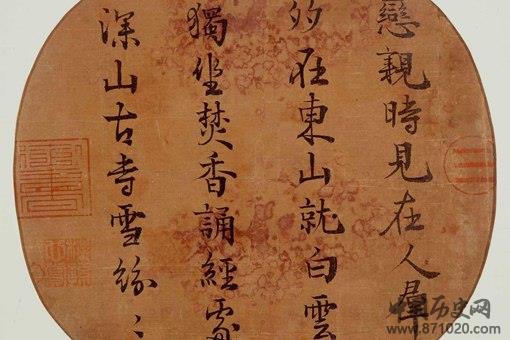 戀親時見在人羣
多在東山就白雲
獨坐焚香誦經處
深山古寺雪紛〻
历史网
www.871020.com